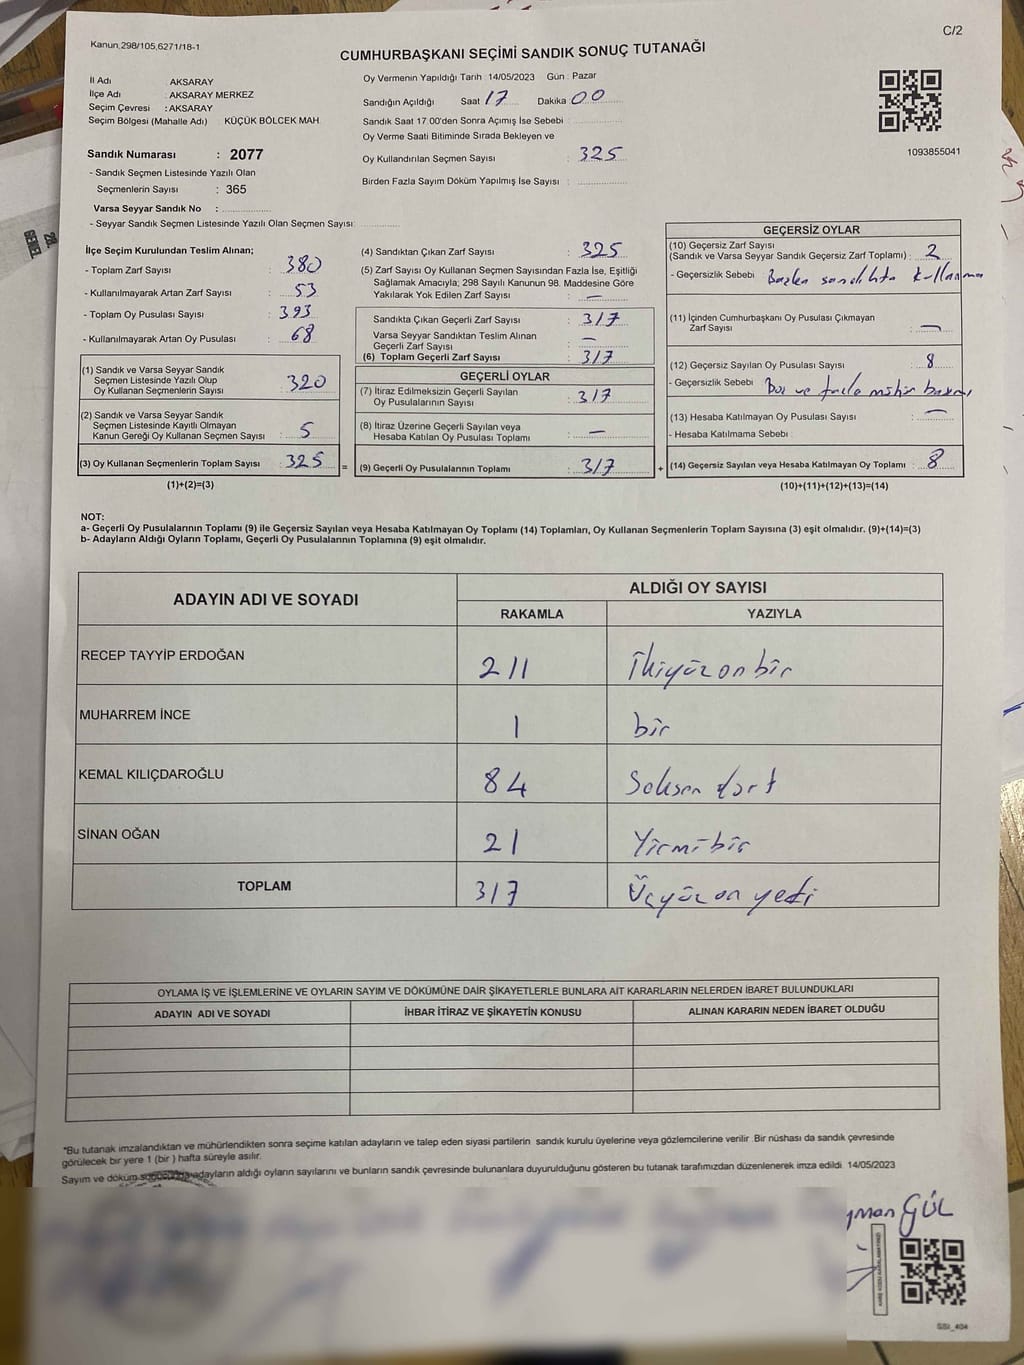 Kanun,298/105,6271/18-1
C/2
CUMHURBAŞKANI SEÇİMİ SANDIK SONUÇ TUTANAĞI
İl Adı AKSARAY
İlçe Adı : AKSARAY MERKEZ
Seçim Çevresi : AKSARAY
Seçim Bölgesi (Mahalle Adı) : KÜÇÜK BÖLCEK MAH.
Sandık Numarası : 2077
- Sandık Seçmen Listesinde Yazılı Olan
Seçmenlerin Sayısı : 365
Varsa Seyyar Sandık No :
- Seyyar Sandık Seçmen Listesinde Yazılı Olan Seçmen Sayısı:
Oy Vermenin Yapıldığı Tarih : 14/05/2023 Gün : Pazar
Sandığın Açıldığı Saat 17 Dakika 00
Sandık Saat 17.00'den Sonra Açımış İse Sebebi :
Oy Verme Saati Bitiminde Sırada Bekleyen ve
Oy Kullandırılan Seçmen Sayısı : 325
Birden Fazla Sayım Döküm Yapılmış İse Sayısı :
1093855041
İlçe Seçim Kurulundan Teslim Alınan;
- Toplam Zarf Sayısı : 380
- Kullanılmayarak Artan Zarf Sayısı : 53
- Toplam Oy Pusulası Sayısı : 393
- Kullanılmayarak Artan Oy Pusulası : 68
(1) Sandık ve Varsa Seyyar Sandık
Seçmen Listesinde Yazılı Olup
Oy Kullanan Seçmenlerin Sayısı : 320
(2) Sandık ve Varsa Seyyar Sandık
Seçmen Listesinde Kayıtlı Olmayan
Kanun Gereği Oy Kullanan Seçmen Sayısı : 5
(3) Oy Kullanan Seçmenlerin Toplam Sayısı : 325 =
(1)+(2)=(3)
(4) Sandıktan Çıkan Zarf Sayısı : 325
(5) Zarf Sayısı Oy Kullanan Seçmen Sayısından Fazla İse, Eşitliği
Sağlamak Amacıyla; 298 Sayılı Kanunun 98. Maddesine Göre
Yakılarak Yok Edilen Zarf Sayısı : —
Sandıkta Çıkan Geçerli Zarf Sayısı : 317
Varsa Seyyar Sandıktan Teslim Alınan
Geçerli Zarf Sayısı : —
(6) Toplam Geçerli Zarf Sayısı : 317
GEÇERLİ OYLAR
(7) İtiraz Edilmeksizin Geçerli Sayılan
Oy Pusulalarının Sayısı : 317
(8) İtiraz Üzerine Geçerli Sayılan veya
Hesaba Katılan Oy Pusulası Toplamı : —
(9) Geçerli Oy Pusulalarının Toplamı : 317 +
GEÇERSİZ OYLAR
(10) Geçersiz Zarf Sayısı
(Sandık ve Varsa Seyyar Sandık Geçersiz Zarf Toplamı) : 2
- Geçersizlik Sebebi : sandıkta kullanma
(11) İçinden Cumhurbaşkanı Oy Pusulası Çıkmayan
Zarf Sayısı : —
(12) Geçersiz Sayılan Oy Pusulası Sayısı : 8
- Geçersizlik Sebebi : Boş ve fazla mühür basımı
(13) Hesaba Katılmayan Oy Pusulası Sayısı : —
- Hesaba Katılmama Sebebi :
(14) Geçersiz Sayılan veya Hesaba Katılmayan Oy Toplamı : 8
(10)+(11)+(12)+(13)=(14)
NOT:
a- Geçerli Oy Pusulalarının Toplamı (9) ile Geçersiz Sayılan veya Hesaba Katılmayan Oy Toplamı (14) Toplamları, Oy Kullanan Seçmenlerin Toplam Sayısına (3) eşit olmalıdır. (9)+(14)=(3)
b- Adayların Aldığı Oyların Toplamı, Geçerli Oy Pusulalarının Toplamına (9) eşit olmalıdır.
ADAYIN ADI VE SOYADI
ALDIĞI OY SAYISI
RAKAMLA YAZIYLA
RECEP TAYYİP ERDOĞAN 211 İkiyüzonbir
MUHARREM İNCE 1 bir
KEMAL KILIÇDAROĞLU 84 Seksen dört
SİNAN OĞAN 21 Yirmibir
TOPLAM 317 Üçyüzonyedi
OYLAMA İŞ VE İŞLEMLERİNE VE OYLARIN SAYIM VE DÖKÜMÜNE DAİR ŞİKAYETLERLE BUNLARA AİT KARARLARIN NELERDEN İBARET BULUNDUKLARI
ADAYIN ADI VE SOYADI İHBAR İTİRAZ VE ŞİKAYETİN KONUSU ALINAN KARARIN NEDEN İBARET OLDUĞU
"Bu tutanak imzalandıktan ve mühürlendikten sonra seçime katılan adayların ve talep eden siyasi partilerin sandık kurulu üyelerine veya gözlemcilerine verilir. Bir nüshası da sandık çevresinde
görülecek bir yere 1 (bir ) hafta süreyle asılır.
Sayım ve döküm adayların aldığı oyların sayılarını ve bunların sandık çevresinde bulunanlara duyurulduğunu gösteren bu tutanak tarafımızdan düzenlenerek imza edildi. 14/05/2023
GÜL
GENEL